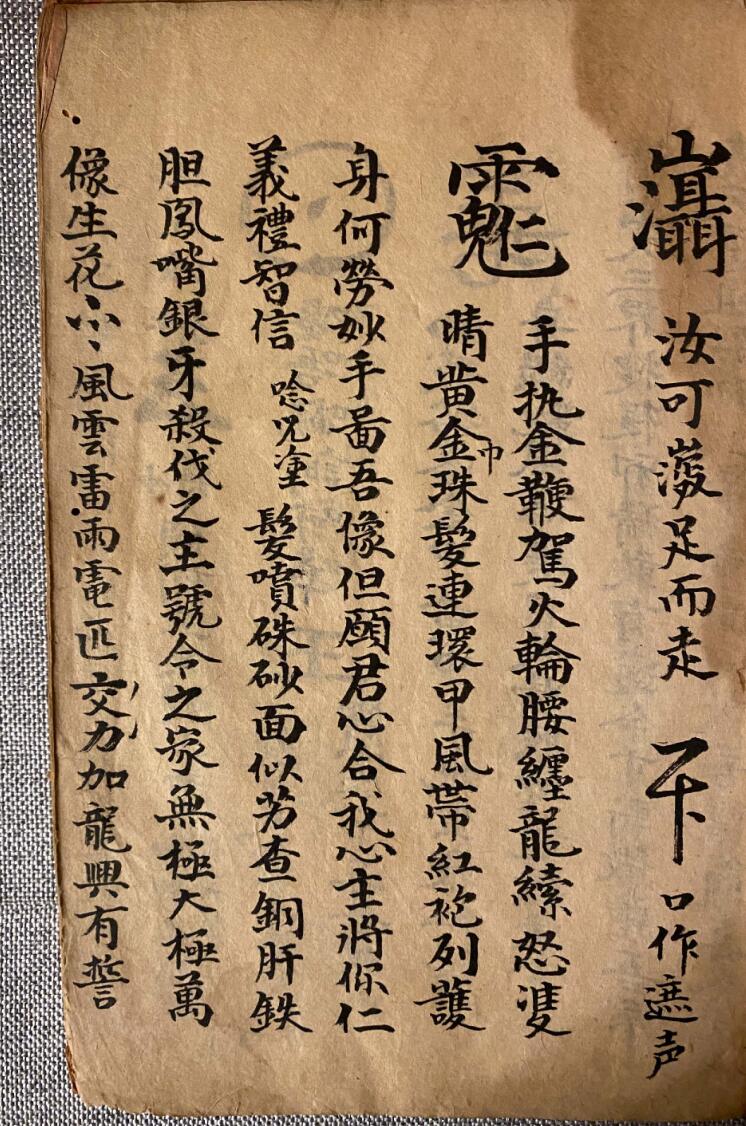 汝可 足而走 口作遮声
手执金鞭駕火輪腰纏龍縤怒㕠
晴黄金巾珠髮連環甲風帶紅袍列護
身何勞妙手啚吾像但願君心合我心主將你仁
義禮智信 唸咒塗 髮噴硃砂面似芀查銅肝鉄
胆鳳嘴銀牙殺伐之主號令之家無極大極萬
像生花 風雲雷雨電匹交力加龍興有誓